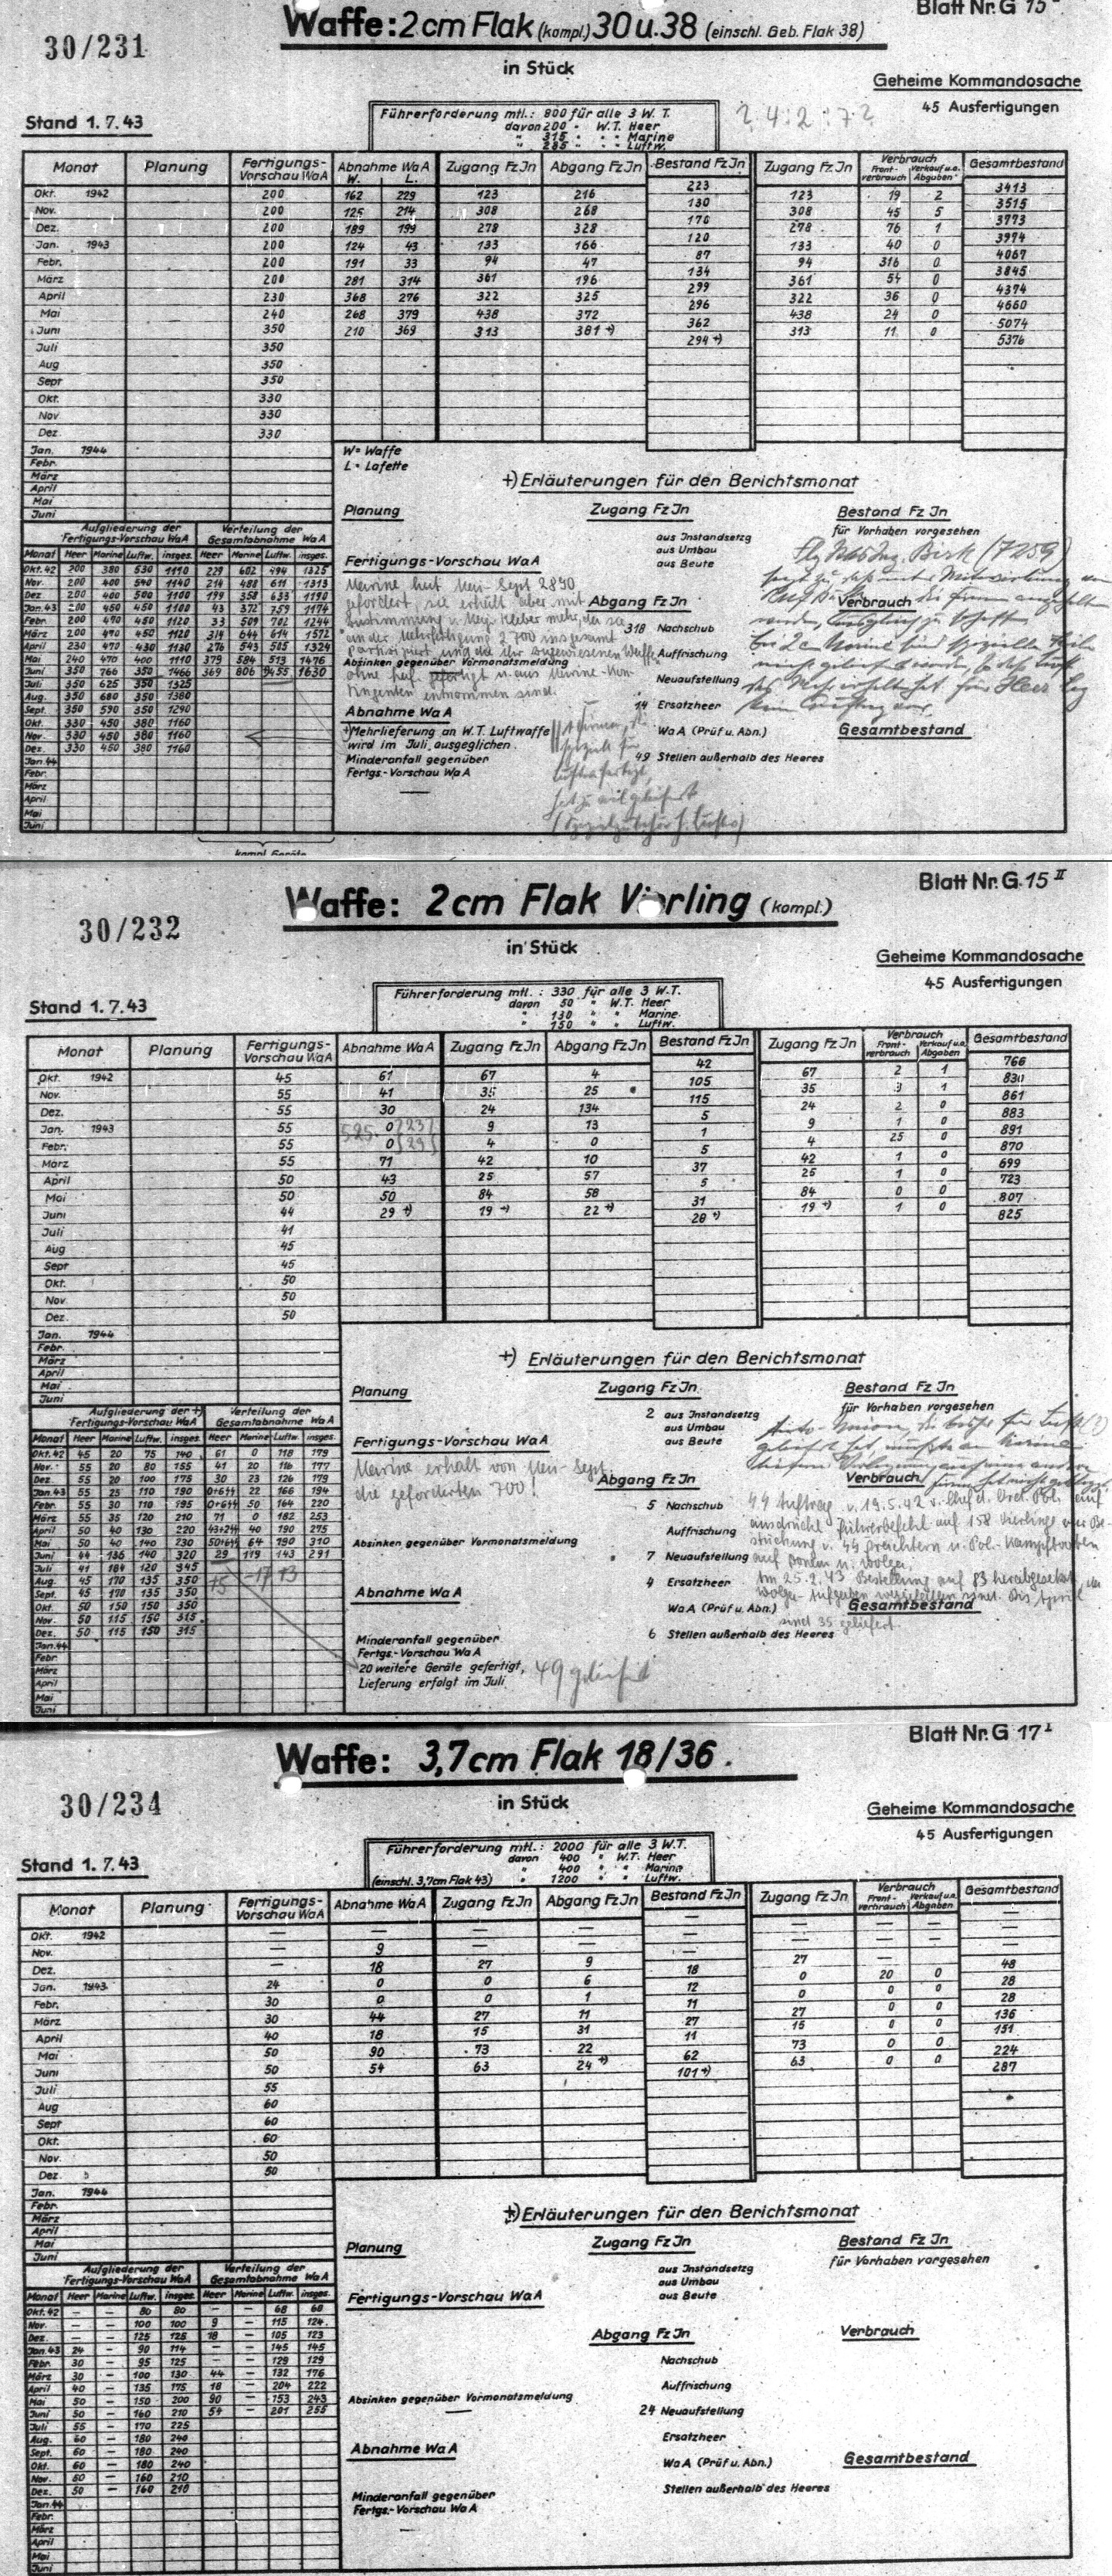 Blatt Nr. G 15
30/231
Waffe: 2cm Flak (kompl.) 30 u. 38 (einschl. Geb. Flak 38)
in Stück
Geheime Kommandosache
45 Ausfertigungen
Stand 1.7.43
Führerforderung mtl.: 800 für alle 3 W.T.
davon 200 " W.T. Heer
" 315 " " " Marine
" 285 " " " Luftw.
? 4:2:7?
Monat Planung Fertigungs-Vorschau WaA Abnahme WaA W. L. Zugang Fz Jn Abgang Fz Jn Bestand Fz Jn Zugang Fz Jn Verbrauch Front-verbrauch Verkauf u.a. Abgaben Gesamtbestand
223 3413
Okt. 1942 200 162 229 123 216 130 123 19 2 3515
Nov. 200 125 214 308 268 170 308 45 5 3773
Dez. 200 189 199 278 328 120 278 76 1 3974
Jan. 1943 200 124 43 133 166 87 133 40 0 4067
Febr. 200 191 33 94 47 134 94 316 0 3845
März 200 281 314 361 196 299 361 54 0 4374
April 230 368 276 322 325 296 322 36 0 4660
Mai 240 268 379 438 372 362 438 24 0 5074
Juni 350 210 369 313 381 +) 294 +) 313 11 0 5376
Juli 350
Aug 350
Sept 350
Okt. 330
Nov 330
Dez. 330
Jan. 1944
Febr.
März
April
Mai
Juni
W = Waffe
L = Lafette
+) Erläuterungen für den Berichtsmonat
Planung Zugang Fz Jn Bestand Fz Jn
für Vorhaben vorgesehen
aus Instandsetzg
aus Umbau
aus Beute
Fertigungs-Vorschau WaA
Abgang Fz Jn Verbrauch
318 Nachschub
Auffrischung
Absinken gegenüber Vormonatsmeldung
Neuaufstellung
14 Ersatzheer
Abnahme WaA
+) Mehrlieferung an W.T. Luftwaffe
wird im Juli ausgeglichen.
WaA (Prüf u. Abn.) Gesamtbestand
Minderanfall gegenüber
Fertgs-Vorschau WaA
49 Stellen außerhalb des Heeres
Aufgliederung der Fertigungs-Vorschau WaA Verteilung der Gesamtabnahme WaA
Monat Heer Marine Luftw. insges. Heer Marine Luftw. insges.
Okt. 42 200 380 530 1110 229 602 494 1325
Nov. 200 400 540 1140 214 488 611 1313
Dez. 200 400 500 1100 199 358 633 1190
Jan. 43 200 450 450 1100 43 372 759 1174
Febr. 200 470 450 1120 33 509 702 1244
März 200 470 450 1120 314 644 614 1572
April 230 470 430 1130 276 543 505 1324
Mai 240 470 400 1110 379 584 513 1476
Juni 350 766 350 1466 369 806 +)455 1630
Juli 350 625 350 1325
Aug. 350 680 350 1380
Sept. 350 590 350 1290
Okt. 330 450 380 1160
Nov. 330 450 380 1160
Dez. 330 450 380 1160
Jan. 44
Febr.
März
April
Mai
Juni
kompl. Geräte
Blatt Nr. G 15 II
30/232
Waffe: 2cm Flak Vierling (kompl.)
in Stück
Geheime Kommandosache
45 Ausfertigungen
Stand 1.7.43
Führerforderung mtl.: 330 für alle 3 W.T.
davon 50 " W.T. Heer
" 130 " " Marine
" 150 " " Luftw.
Monat Planung Fertigungs-Vorschau WaA Abnahme WaA Zugang Fz Jn Abgang Fz Jn Bestand Fz Jn Zugang Fz Jn Verbrauch Front-verbrauch Verkauf u.a. Abgaben Gesamtbestand
42 766
Okt. 1942 45 61 67 4 105 67 2 1 830
Nov. 55 41 35 25 115 35 3 1 861
Dez. 55 30 24 134 5 24 2 0 883
Jan. 1943 55 0 9 13 1 9 1 0 891
Febr. 55 0 4 0 5 4 25 0 870
März 55 71 42 10 37 42 1 0 699
April 50 43 25 57 5 25 1 0 723
Mai 50 50 84 58 31 84 0 0 807
Juni 44 29 +) 19 +) 22 +) 28 +) 19 +) 1 0 825
Juli 41
Aug 45
Sept 45
Okt. 50
Nov 50
Dez. 50
Jan. 1944
Febr.
März
April
Mai
Juni
+) Erläuterungen für den Berichtsmonat
Planung Zugang Fz Jn Bestand Fz Jn
für Vorhaben vorgesehen
2 aus Instandsetzg
aus Umbau
aus Beute
Fertigungs-Vorschau WaA
Marine erhält von Mai - Sept.
die geforderten 700!
Abgang Fz Jn Verbrauch
5 Nachschub
Auffrischung
Absinken gegenüber Vormonatsmeldung
7 Neuaufstellung
4 Ersatzheer
Abnahme WaA
WaA (Prüf u. Abn.) Gesamtbestand
6 Stellen außerhalb des Heeres
Minderanfall gegenüber
Fertgs.-Vorschau WaA
20 weitere Geräte gefertigt,
Lieferung erfolgt im Juli
49 geliefert
Aufgliederung der +) Fertigungs-Vorschau WaA Verteilung der Gesamtabnahme WaA
Monat Heer Marine Luftw. insges. Heer Marine Luftw. insges.
Okt. 42 45 20 75 140 61 0 118 179
Nov. 55 20 80 155 41 20 116 177
Dez. 55 20 100 175 30 23 126 179
Jan. 43 55 25 110 190 0+6 22 166 194
Febr. 55 30 110 195 0+6 50 164 220
März 55 35 120 210 71 0 182 253
April 50 40 130 220 43+2 40 190 275
Mai 50 40 140 230 50+6 64 190 310
Juni 44 136 140 320 29 119 143 291
Juli 41 184 120 345
Aug. 45 170 135 350
Sept. 45 170 135 350
Okt. 50 150 150 350
Nov. 50 115 150 315
Dez. 50 115 150 315
Jan. 44
Febr.
März
April
Mai
Juni
Blatt Nr. G 17 I
30/234
Waffe: 3,7cm Flak 18/36.
in Stück
Geheime Kommandosache
45 Ausfertigungen
Stand 1.7.43
Führerforderung mtl.: 2000 für alle 3 W.T.
davon 400 " W.T. Heer
" 400 " " Marine
(einschl. 3,7cm Flak 43) " 1200 " " Luftw.
Monat Planung Fertigungs-Vorschau WaA Abnahme WaA Zugang Fz Jn Abgang Fz Jn Bestand Fz Jn Zugang Fz Jn Verbrauch Front-verbrauch Verkauf u.a. Abgaben Gesamtbestand
Okt. 1942 — — — — — — — — —
Nov. — 9 — — — — — — —
Dez. — 18 27 9 18 27 — 48
Jan. 1943 24 0 0 6 12 0 20 0 28
Febr. 30 0 0 1 11 0 0 0 28
März 30 44 27 11 27 27 0 0 136
April 40 18 15 31 11 15 0 0 151
Mai 50 90 73 22 62 73 0 0 224
Juni 50 54 63 24 +) 101 +) 63 0 0 287
Juli 55
Aug 60
Sept 60
Okt. 60
Nov. 50
Dez. 50
Jan. 1944
Febr.
März
April
Mai
Juni
+) Erläuterungen für den Berichtsmonat
Planung Zugang Fz Jn Bestand Fz Jn
für Vorhaben vorgesehen
aus Instandsetzg
aus Umbau
aus Beute
Fertigungs-Vorschau WaA
Abgang Fz Jn Verbrauch
Nachschub
Auffrischung
Absinken gegenüber Vormonatsmeldung
—
24 Neuaufstellung
Ersatzheer
Abnahme WaA
WaA (Prüf u. Abn.) Gesamtbestand
Stellen außerhalb des Heeres
Minderanfall gegenüber
Fertgs.-Vorschau WaA
—
Aufgliederung der Fertigungs-Vorschau WaA Verteilung der Gesamtabnahme WaA
Monat Heer Marine Luftw. insges. Heer Marine Luftw. insges.
Okt. 42 — — 80 80 — — 68 68
Nov. — — 100 100 9 — 115 124
Dez. — — 125 125 18 — 105 123
Jan. 43 24 — 90 114 — — 145 145
Febr. 30 — 95 125 — — 129 129
März 30 — 100 130 44 — 132 176
April 40 — 135 175 18 — 204 222
Mai 50 — 150 200 90 — 153 243
Juni 50 — 160 210 54 — 201 255
Juli 55 — 170 225
Aug. 60 — 180 240
Sept. 60 — 180 240
Okt. 60 — 180 240
Nov. 50 — 160 210
Dez. 50 — 160 210
Jan. 44
Febr.
März
April
Mai
Juni